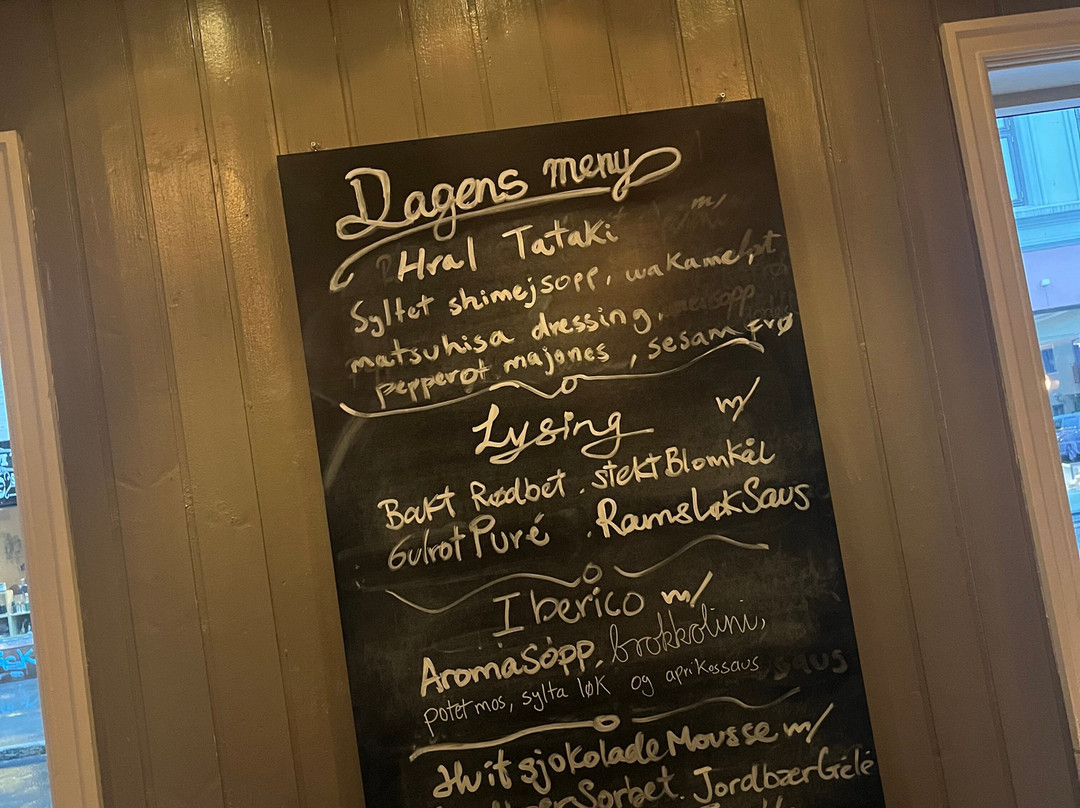 Dagens meny
Hval Tataki m/
Syltet shimejsopp, wakame,
matsuhisa dressing,
pepperot majones, sesam frø
Lysing m/
Bakt Rødbet. stekt Blomkål
Gulrot Puré. Ramsløk Saus
Iberico m/
Aromasopp, brokkolini,
potet mos, sylta løk og aprikossaus
Hvit sjokolade Mousse m/
Sorbet. Jordbær Gélé